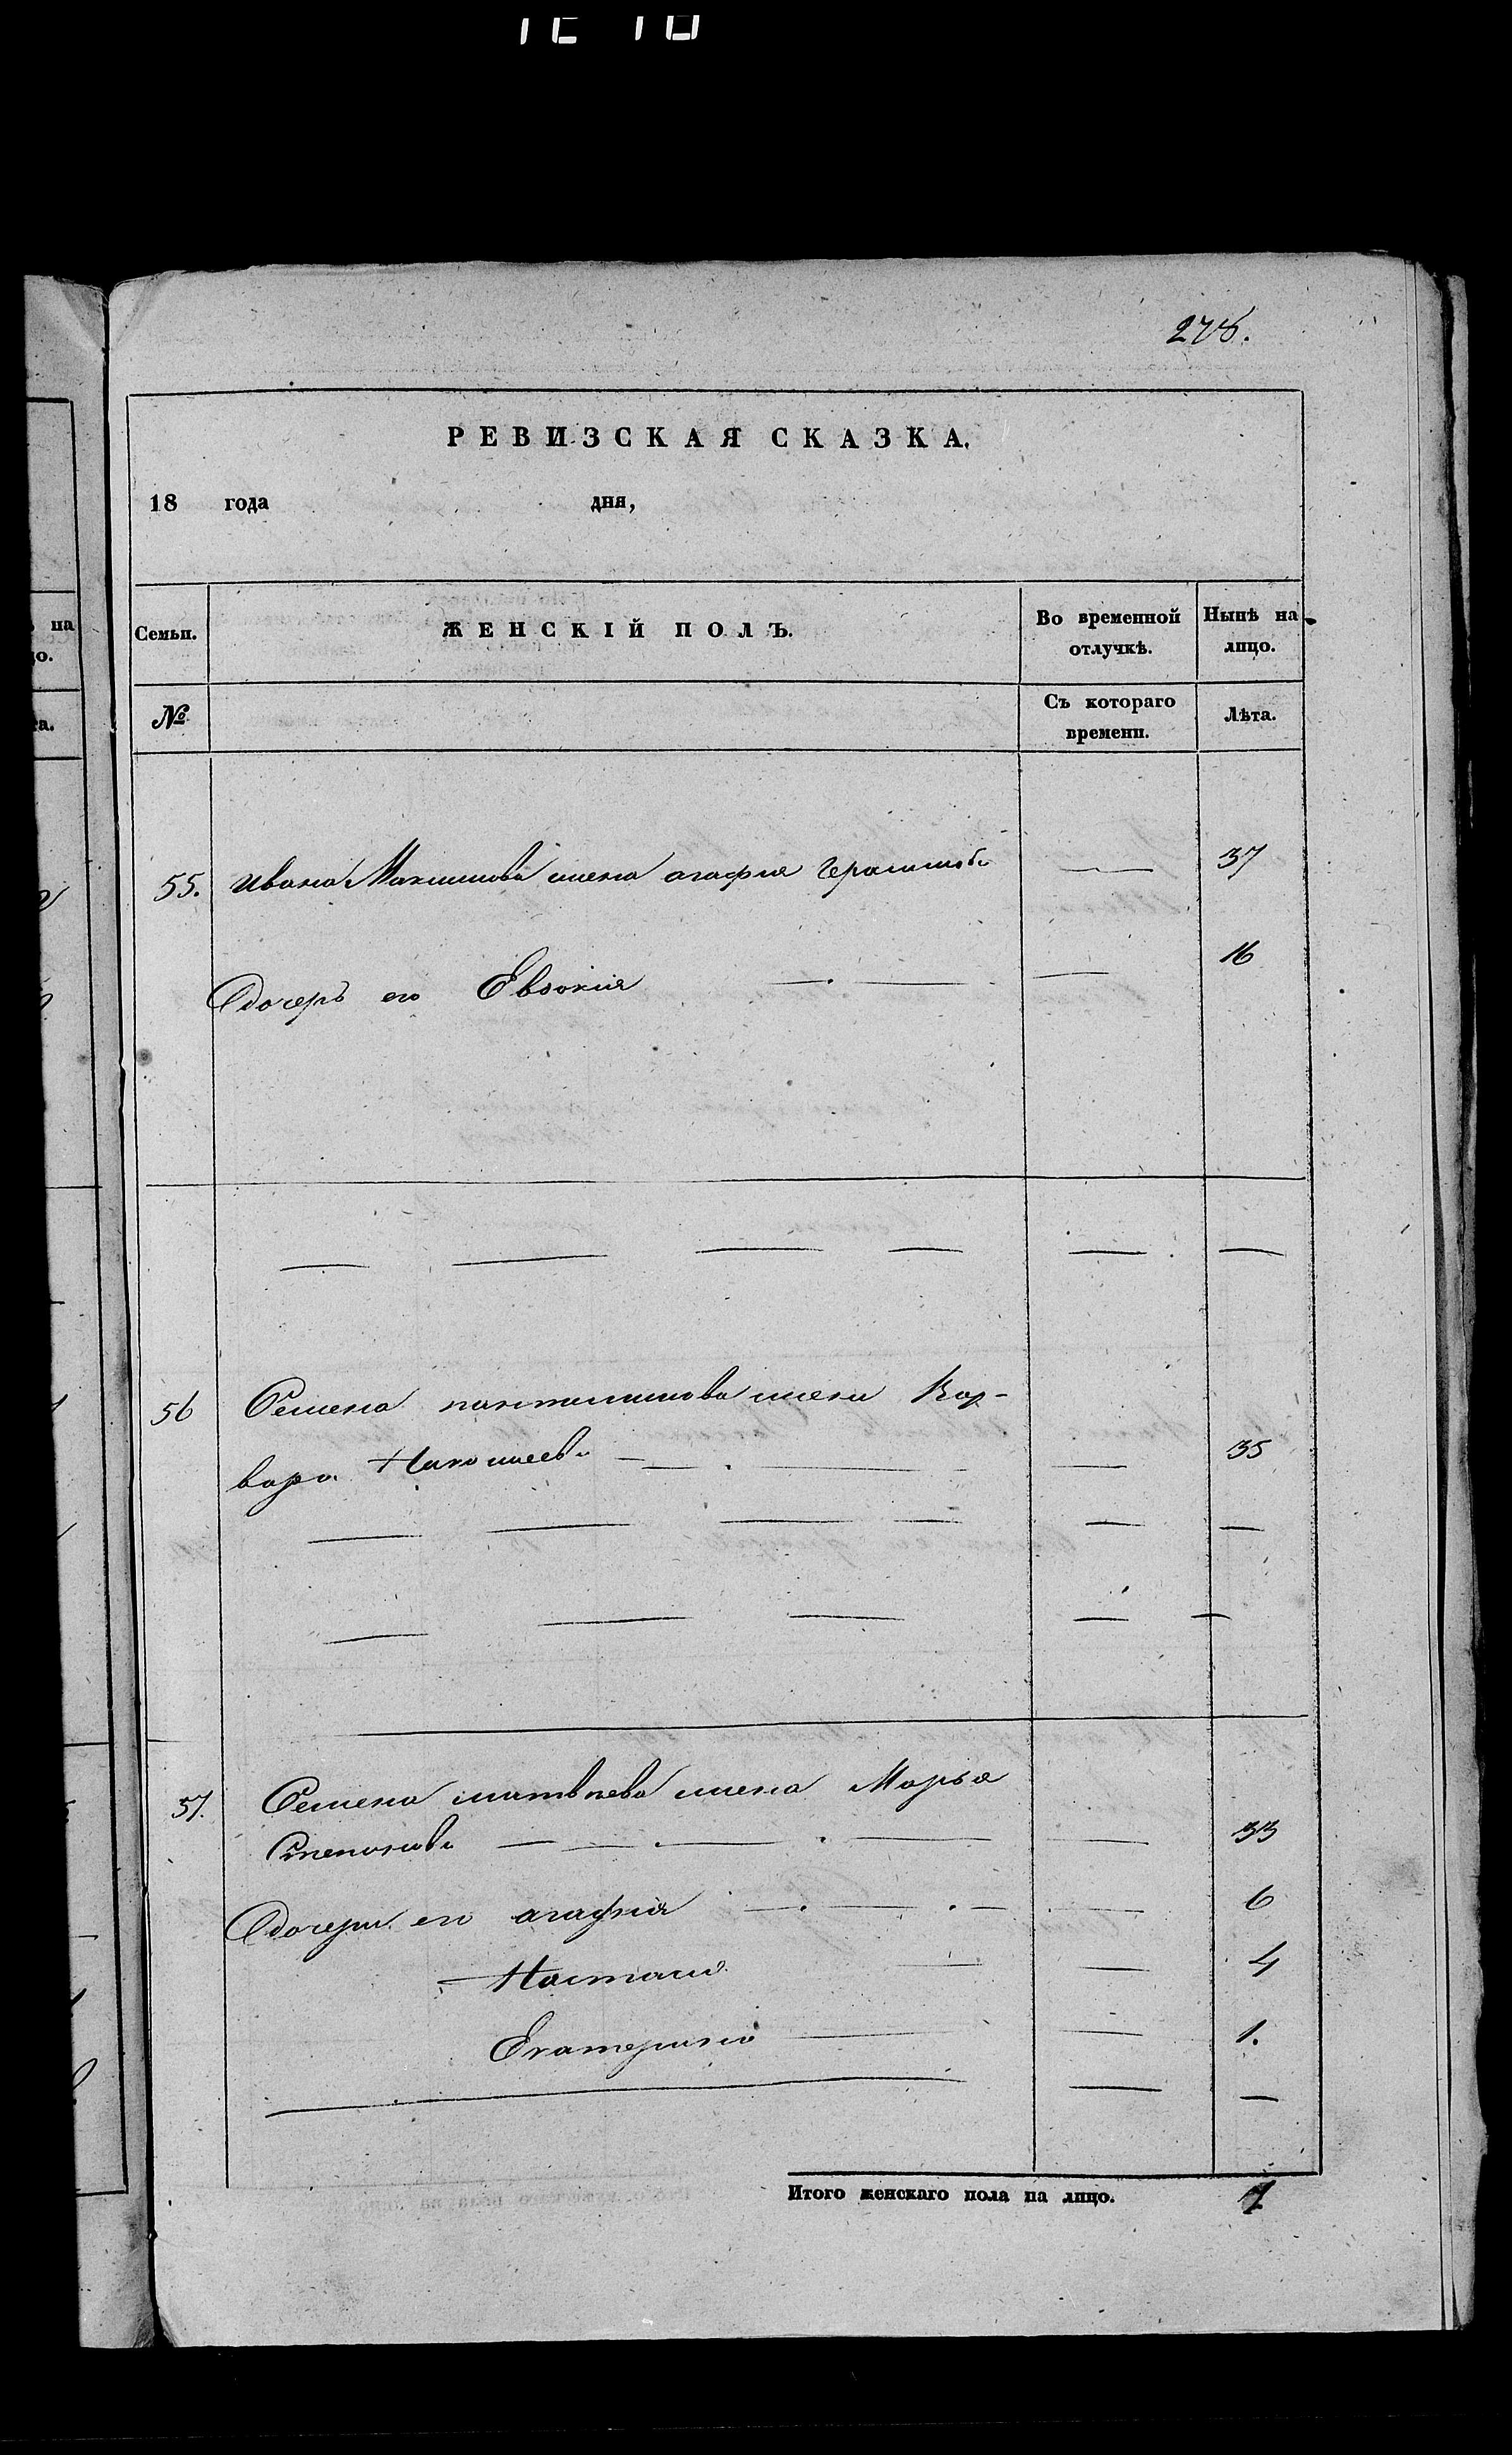 278.
РЕВИЗСКАЯ СКАЗКА.
18 года дня,
Семьи. ЖЕНСКІЙ ПОЛЪ. Во временной отлучкѣ. Нынѣ на лицо.
№ Съ котораго времени. Лѣта.
55. Ивана Максимова жена агафия Герасимова — 37
Дочерь его Евдокия — — 16
— — — — — —
56 Семена пантилимонова жена Вар-
вара — — 35
— — — — — —
— — — — —
57. Семена матвѣева жена Марья
Степанова — — — 33
Дочери его агафия — — 6
Настасия — — 4
Екатерина — — 1.
— — —
Итого женскаго пола на лицо. 7
на
цо.
та.